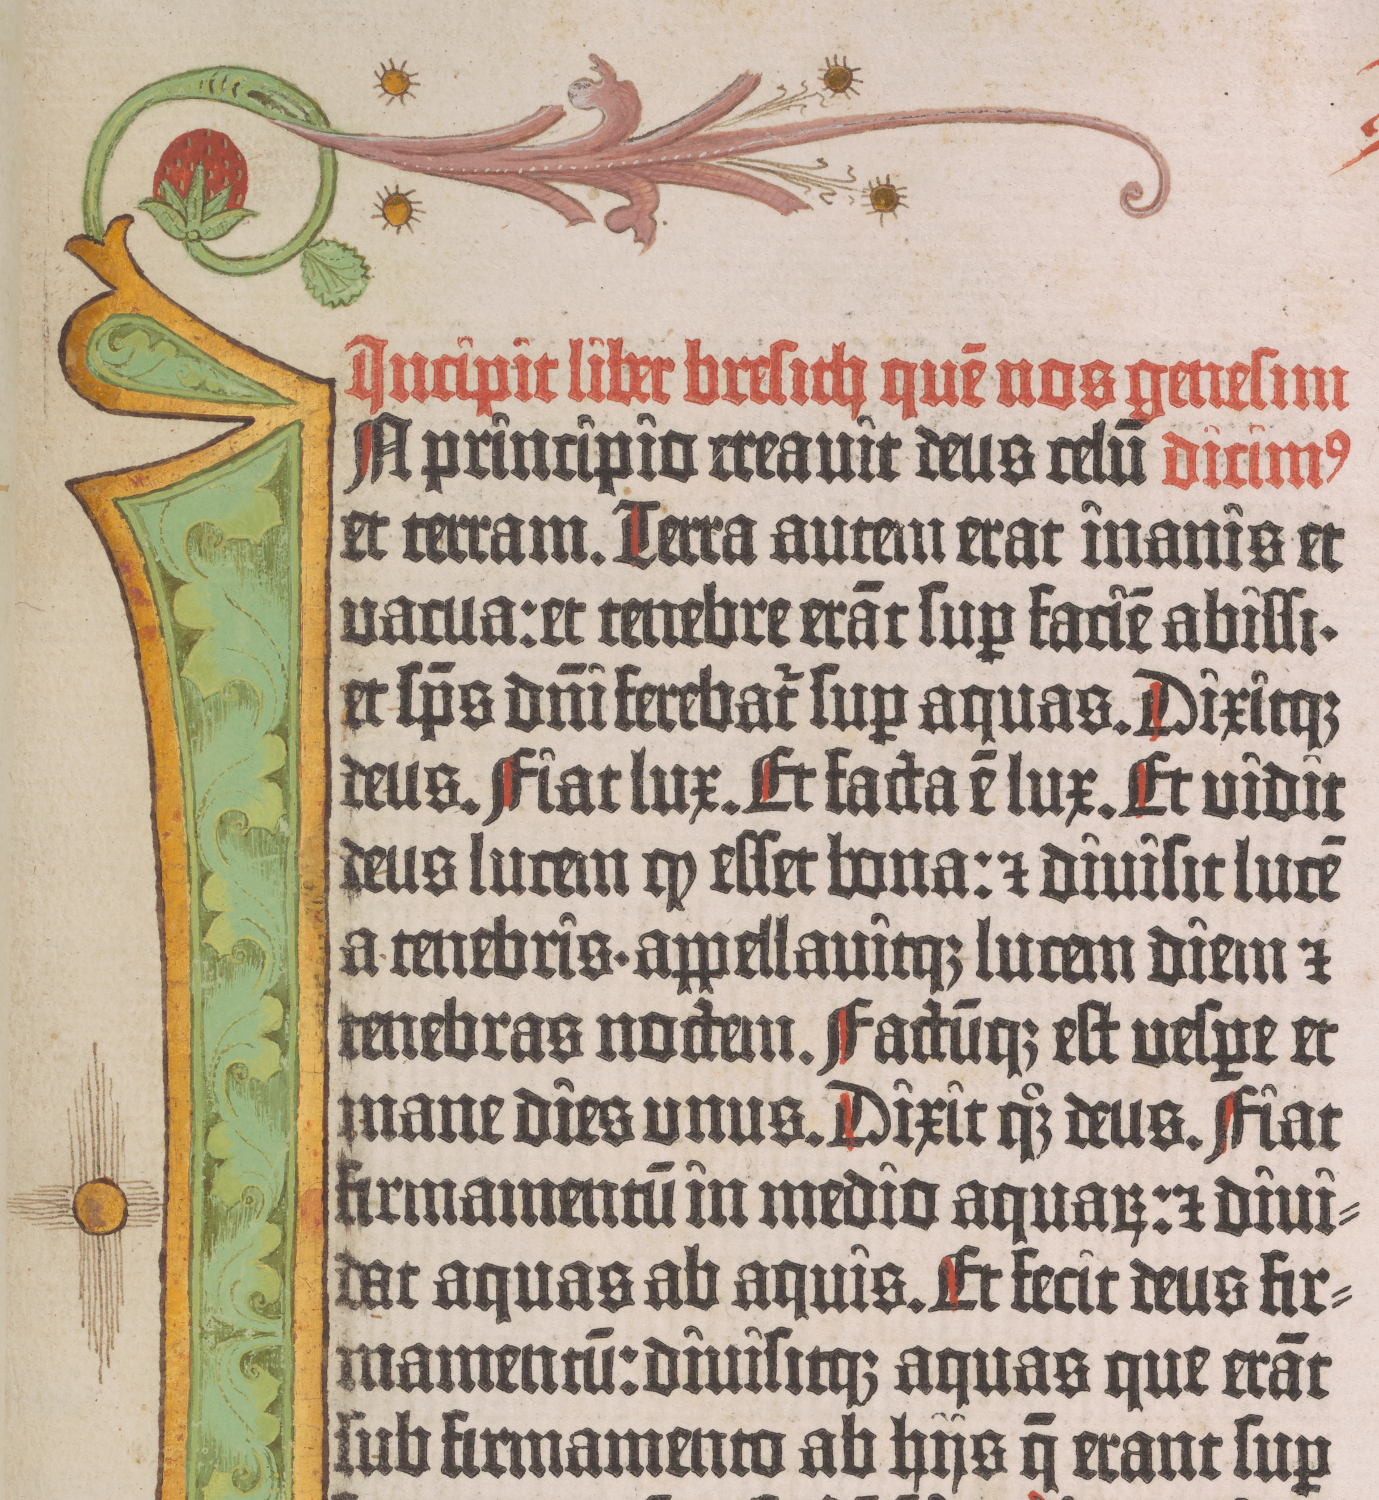 Incipit liber bresith quē nos genesim
IN principio creauit deus celū dicimꝰ
et terram. Terra autem erat inanis et
vacua: et tenebre erāt suꝑ faciē abissi·
et sp̄s dn̄i ferebat᷑ suꝑ aquas. Dixitqꝫ
deus. Fiat lux. Et facta ē lux. Et vidit
deus lucem ꝙ esset bona: ⁊ diuisit lucē
a tenebris· appellauitqꝫ lucem diem ⁊
tenebras noctem. Factūqꝫ est vesꝑe et
mane dies vnus. Dixit qͦꝫ deus. Fiat
firmamentū in medio aquaꝝ: ⁊ diui⸗
dat aquas ab aquis. Et fecit deus fir⸗
mamentū: diuisitqꝫ aquas que erāt
sub firmamento ab hijs q̄ erant suꝑ